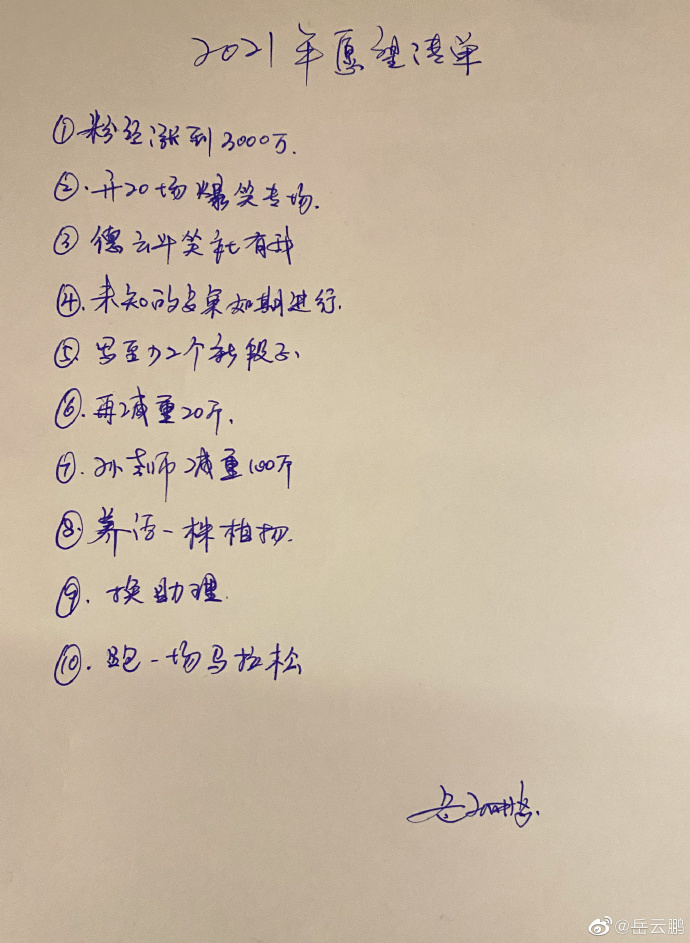 2021年愿望清单
①粉丝涨到3000万.
②.开20场爆笑专场.
③德云斗笑社有我
④.未知的安桌如期进行.
⑤.写至少2个新段子.
⑥.再减重20斤.
⑦.孙老师减重100斤
⑧.养活一株植物.
⑨.换助理.
⑩.跑一场马拉松
岳云鹏.
@岳云鹏